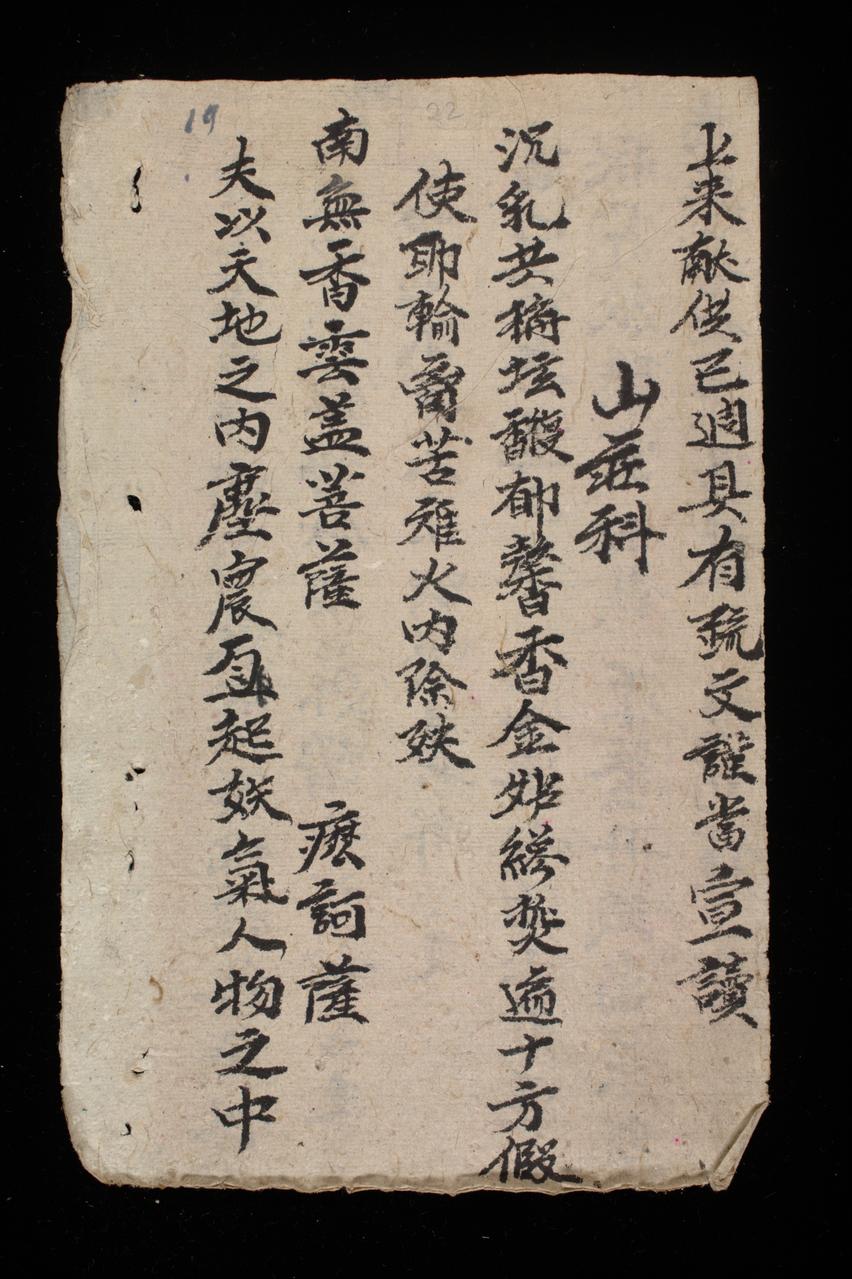 上来献供已週具有疏文謹當宣讀
山莊科
沉乳共摛坛馥郁馨香金炉纔焚遍十方假
使耶輸免苦难火内除妖
南無香雲盖菩薩 摩訶薩
夫以天地之内塵寰互起妖氣人物之中
19
22